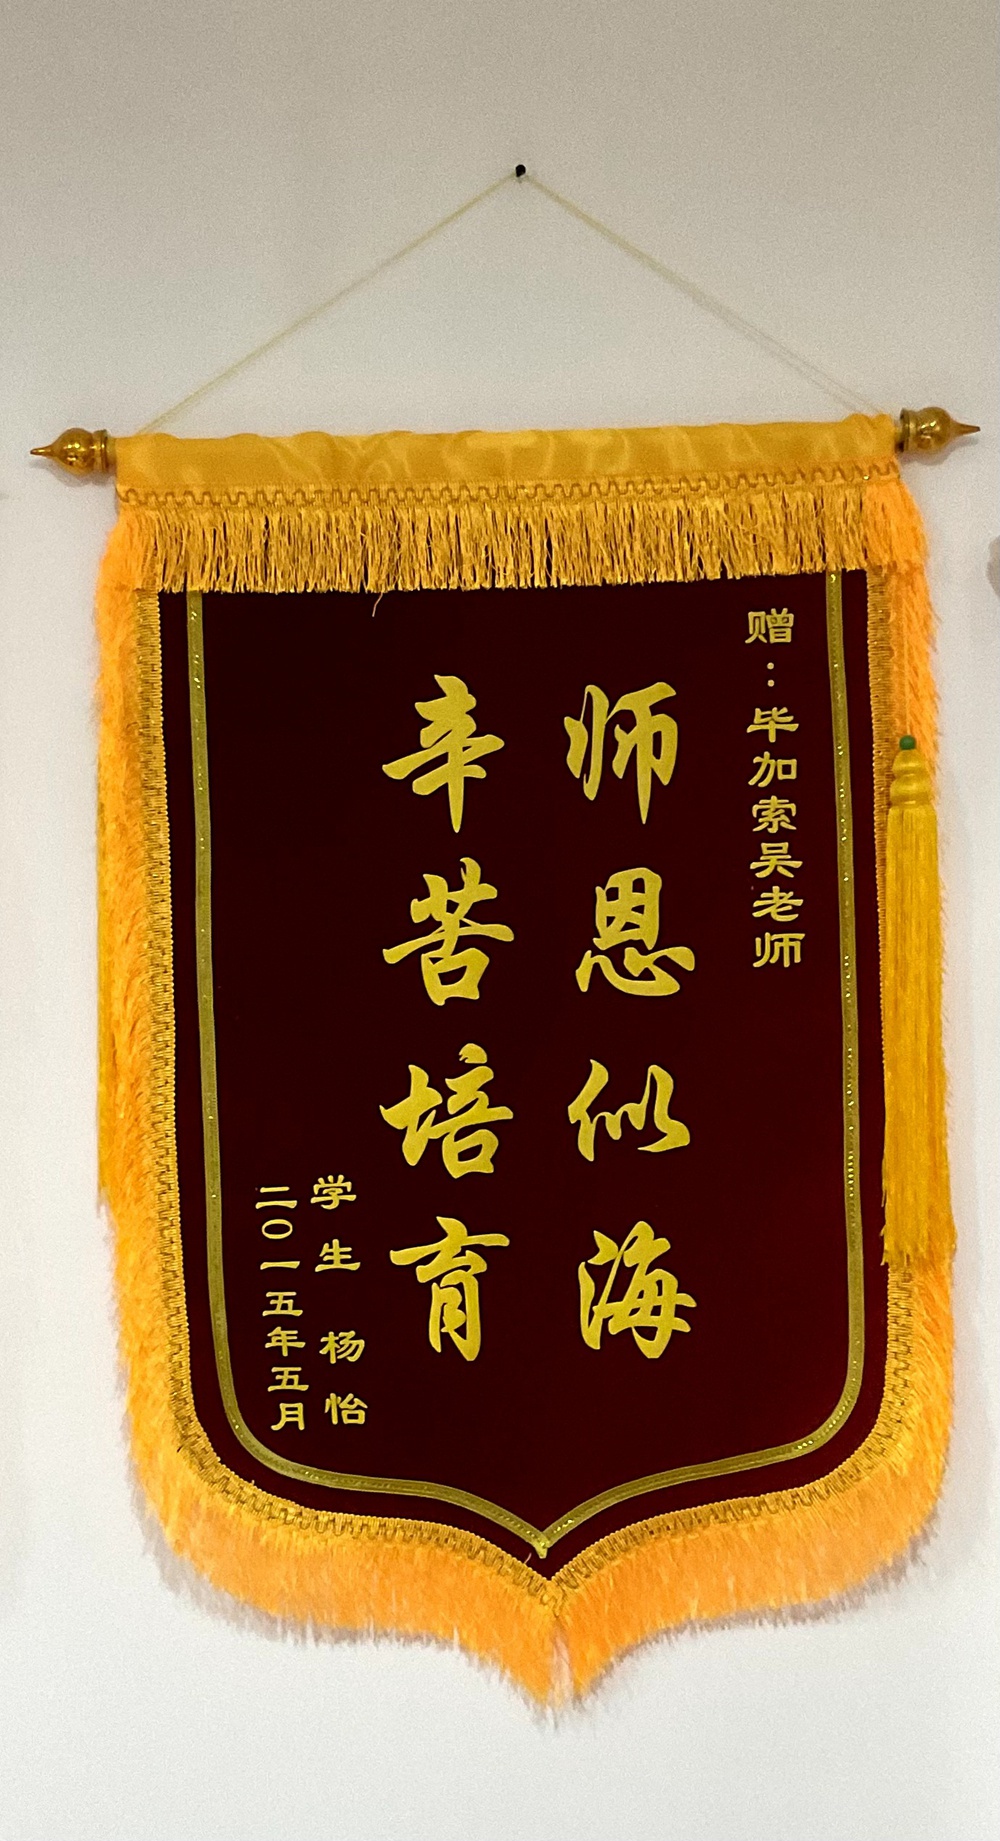 赠：毕加索吴老师
师恩似海
辛苦培育
学生 杨怡
二〇一五年五月